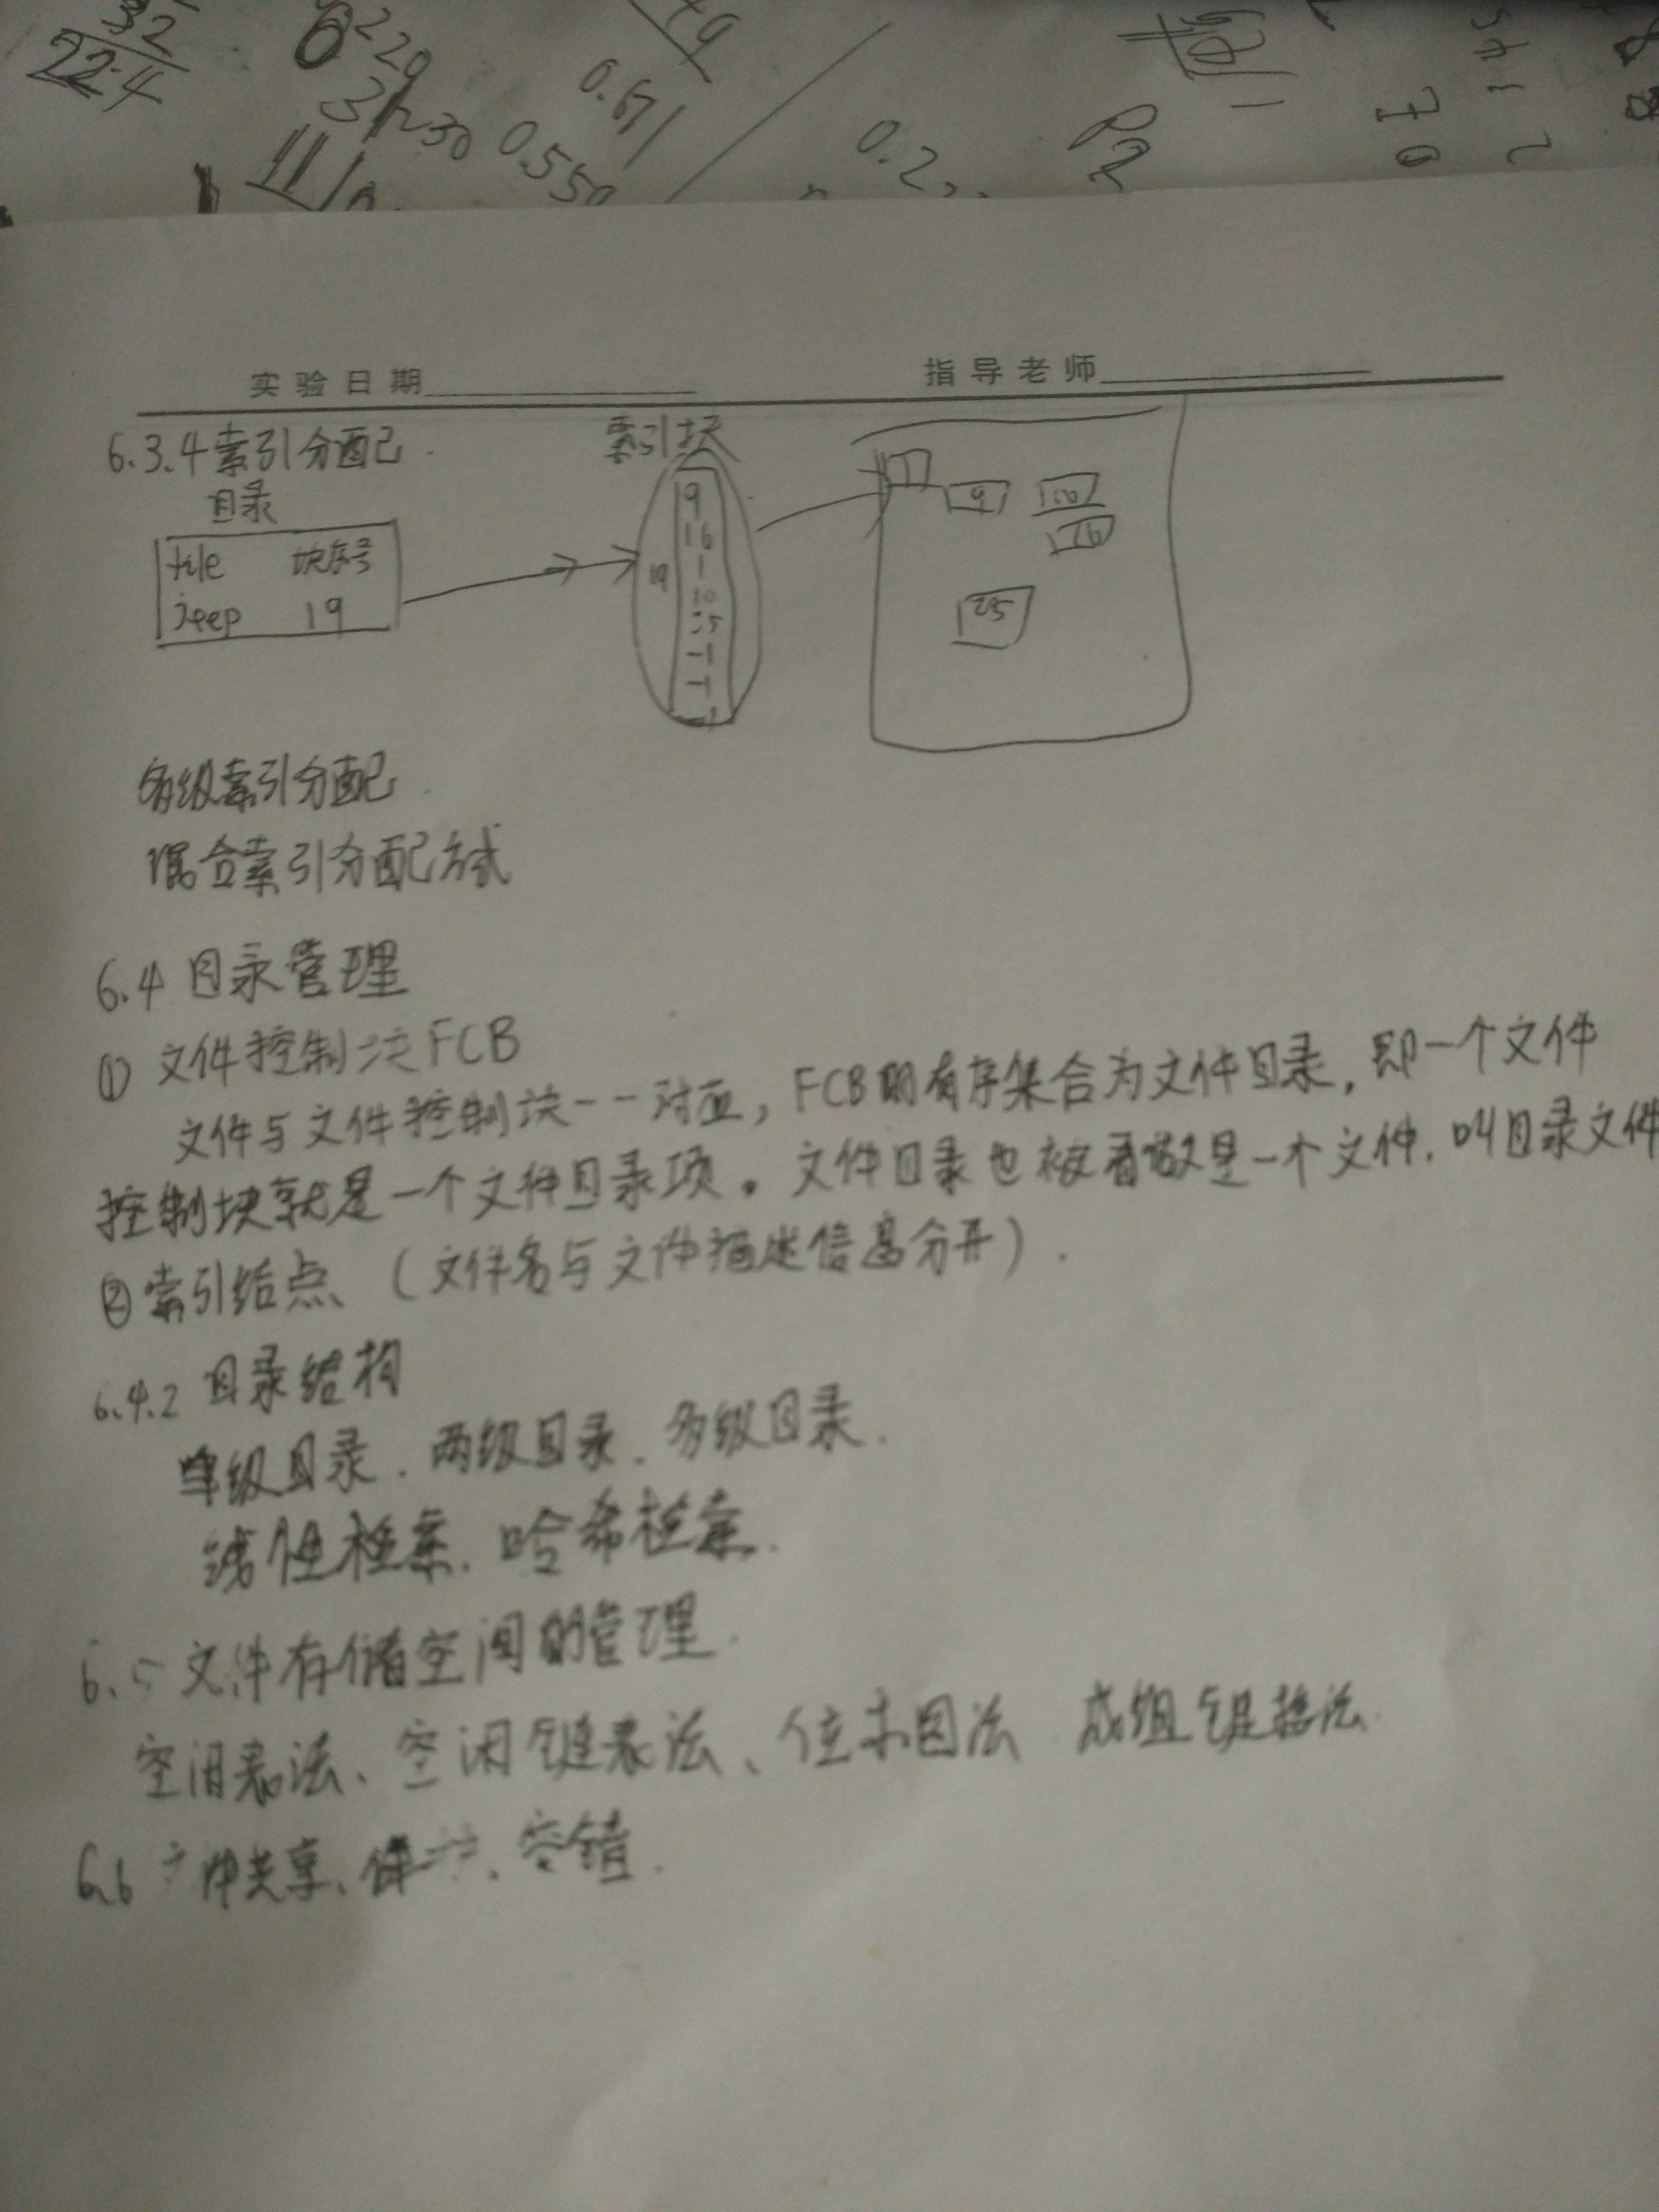 32
22.4
6220
31
230
0.671
0.550
0.2
实验日期 指导老师
6.3.4索引分配
索引块
目录
file 块序号
jeep 19
19
9
16
1
10
25
-1
-1
-1
1
9
10
16
25
多级索引分配
混合索引分配方式
6.4 目录管理
① 文件控制块FCB
文件与文件控制块一一对应，FCB的有序集合为文件目录，即一个文件
控制块就是一个文件目录项。文件目录也被看做是一个文件.叫目录文件
②索引结点 (文件名与文件描述信息分开).
6.4.2 目录结构
单级目录、两级目录、多级目录.
线性检索、哈希检索.
6.5 文件存储空间的管理.
空闲表法、空闲链表法、位示图法 成组链接法.
6.6 文件共享、保护、容错.